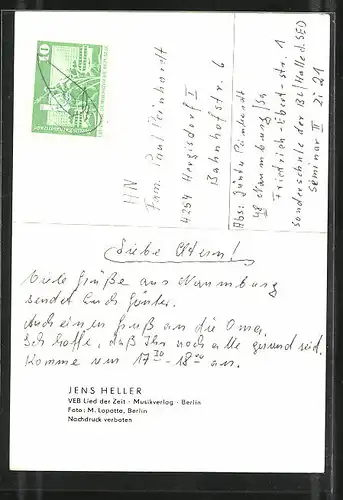 10
AN
Fam. Paul Reinhardt
4254 Hergisdorf I
Bahnhofstr. 6
Abs: Günter Reinhardt
48 Naumburg/S.
Friedrich-Ebert-Str. 1
Sonderschule der BL Halle d. SED
Seminar II Zi 21
Liebe Eltern!
Viele Grüße aus Naumburg
sendet Euch Günter.
Auch einen Gruß an die Oma.
Ich hoffe, daß Ihr noch alle gesund seid.
Komme um 17³⁰-18⁰⁰ an.
JENS HELLER
VEB Lied der Zeit · Musikverlag · Berlin
Foto: M. Lopatta, Berlin
Nachdruck verboten